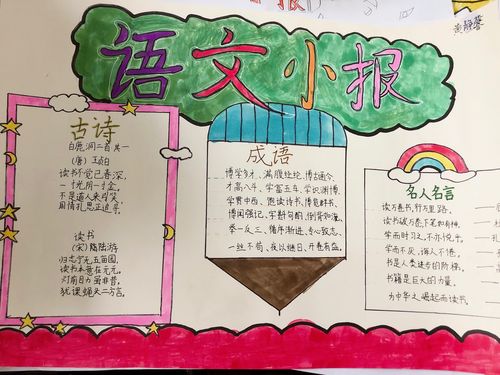 语文小报
古诗
白鹿洞二首 其一
(唐) 王贞白
读书不觉已春深,
一寸光阴一寸金。
不是道人来引笑,
周情孔思正追寻。
读书
(宋) 陆游
归志宁无五亩园,
读书本意在元元。
灯前目力虽非昔,
犹课蝇头二万言。
成语
博学多才、满腹经纶、博古通今、
才高八斗、学富五车、学识渊博、
学贯中西、饱读诗书、博览群书、
博闻强记、字斟句酌、倒背如流、
举一反三、循序渐进、专心致志、
一丝不苟、夜以继日、开卷有益。
名人名言
读万卷书,行万里路。
读书破万卷,下笔如有神。
学而时习之,不亦悦乎。
学而不厌,诲人不倦。
书是人类进步的阶梯。
书籍是巨大的力量。
为中华之崛起而读书。